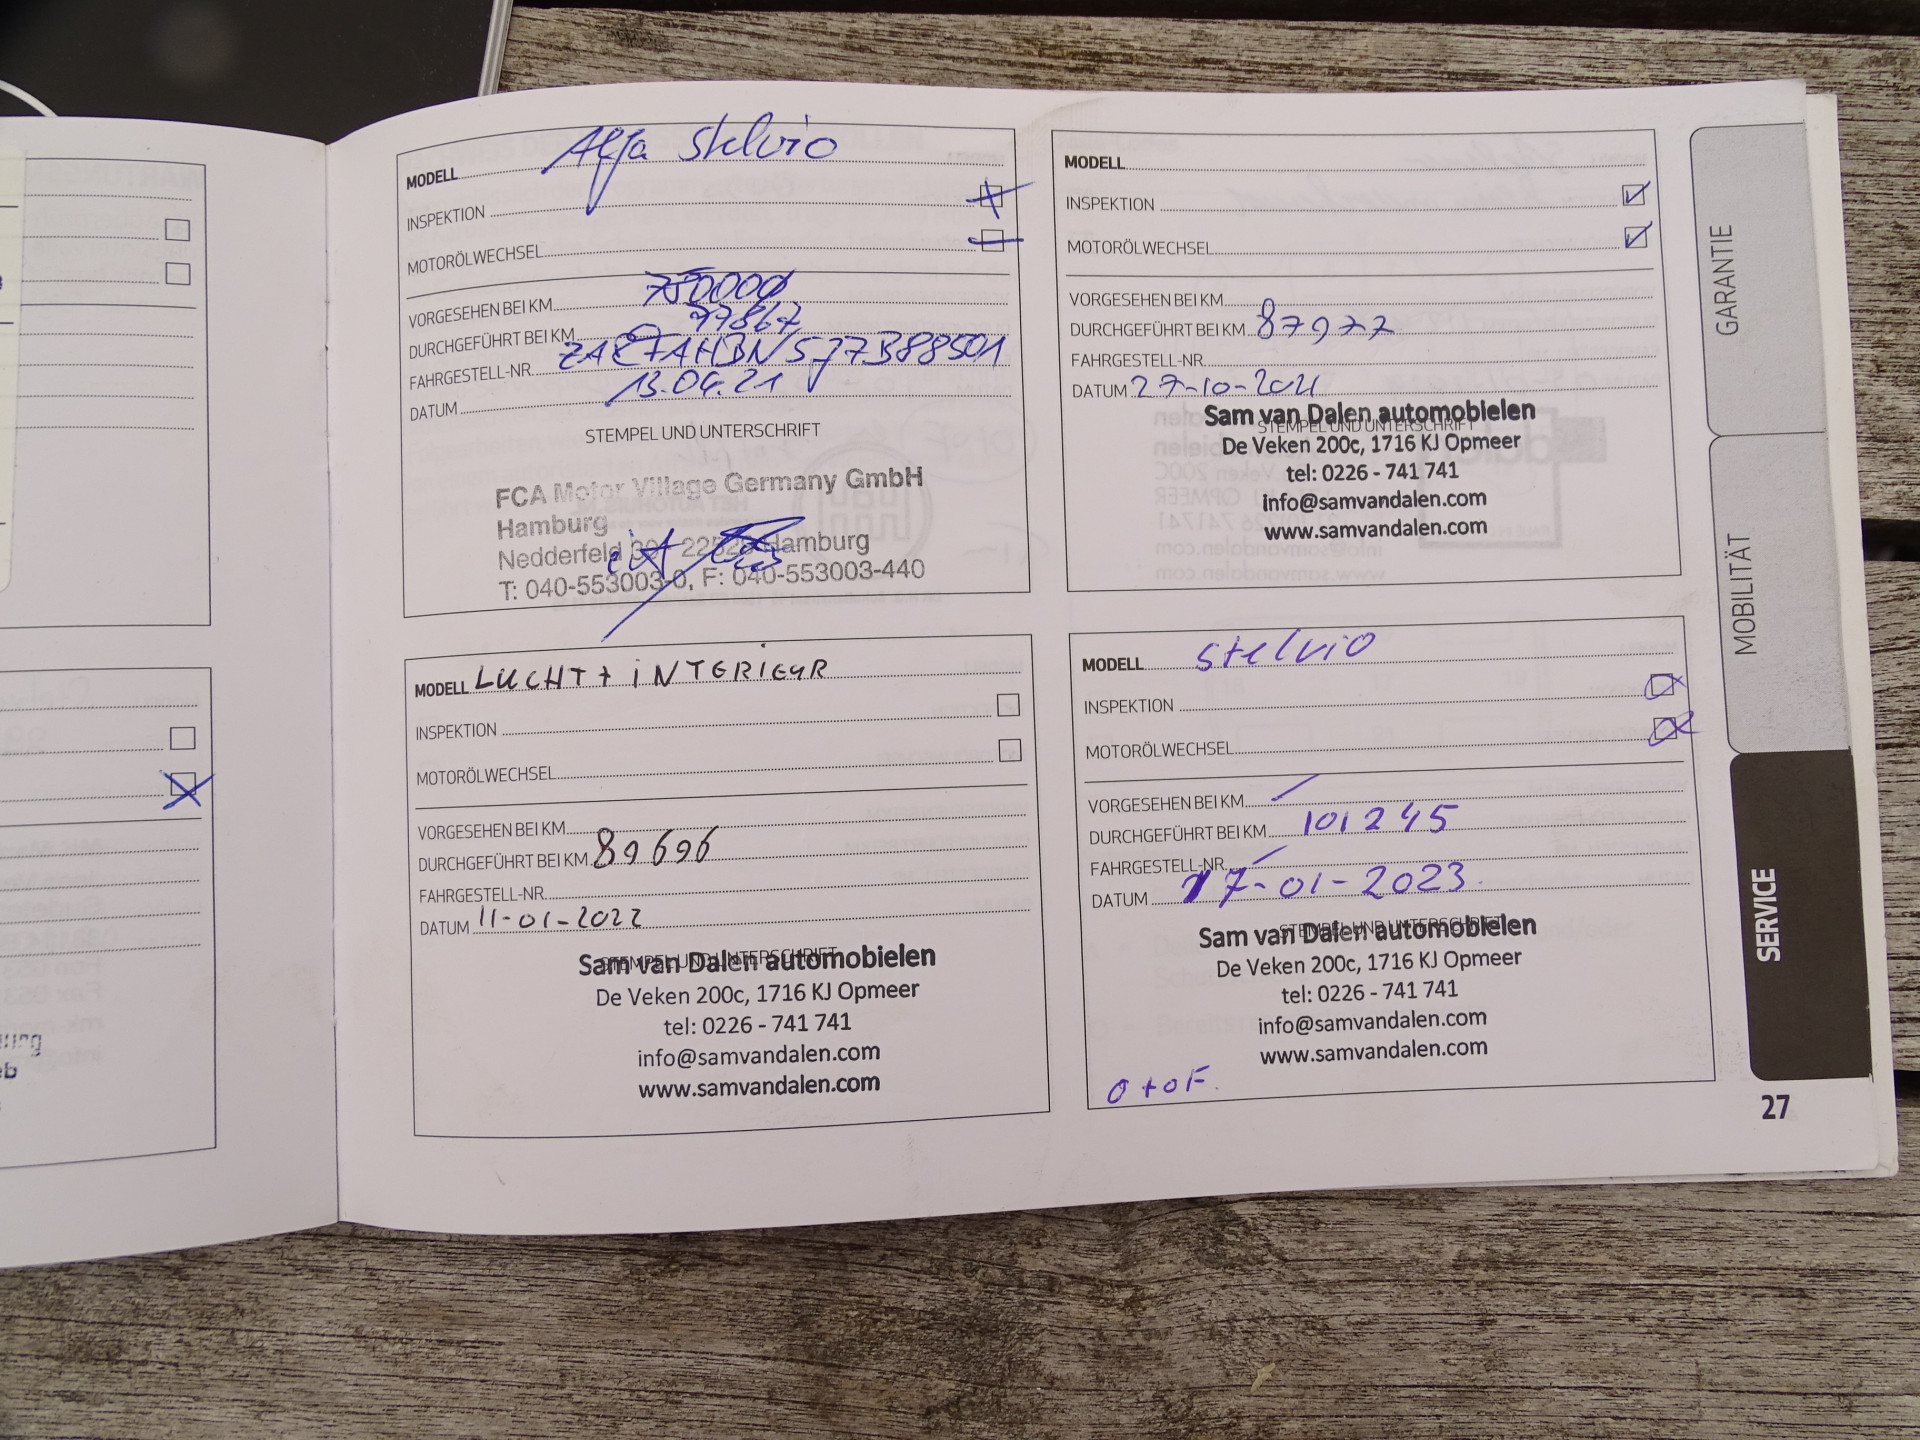 MODELL Alfa Stelvio
INSPEKTION
MOTORÖLWECHSEL
VORGESEHEN BEI KM
DURCHGEFÜHRT BEI KM 77867
FAHRGESTELL-NR.
DATUM
STEMPEL UND UNTERSCHRIFT
FCA Motor Village Germany GmbH
Hamburg
Nedderfeld Hamburg
T: 040-553003-0, F: 040-553003-440
MODELL
INSPEKTION
MOTORÖLWECHSEL
VORGESEHEN BEI KM
DURCHGEFÜHRT BEI KM 87977
FAHRGESTELL-NR.
DATUM 27-10-2021
STEMPEL UND UNTERSCHRIFT
Sam van Dalen automobielen
De Veken 200c, 1716 KJ Opmeer
tel: 0226 - 741 741
info@samvandalen.com
www.samvandalen.com
MODELL LUCHT + INTERIEUR
INSPEKTION
MOTORÖLWECHSEL
VORGESEHEN BEI KM
DURCHGEFÜHRT BEI KM 89696
FAHRGESTELL-NR.
DATUM 11-01-2022
STEMPEL UND UNTERSCHRIFT
Sam van Dalen automobielen
De Veken 200c, 1716 KJ Opmeer
tel: 0226 - 741 741
info@samvandalen.com
www.samvandalen.com
MODELL Stelvio
INSPEKTION
MOTORÖLWECHSEL
VORGESEHEN BEI KM
DURCHGEFÜHRT BEI KM 101245
FAHRGESTELL-NR.
DATUM 17-01-2023
STEMPEL UND UNTERSCHRIFT
Sam van Dalen automobielen
De Veken 200c, 1716 KJ Opmeer
tel: 0226 - 741 741
info@samvandalen.com
www.samvandalen.com
O + OF.
GARANTIE
MOBILITÄT
SERVICE
27